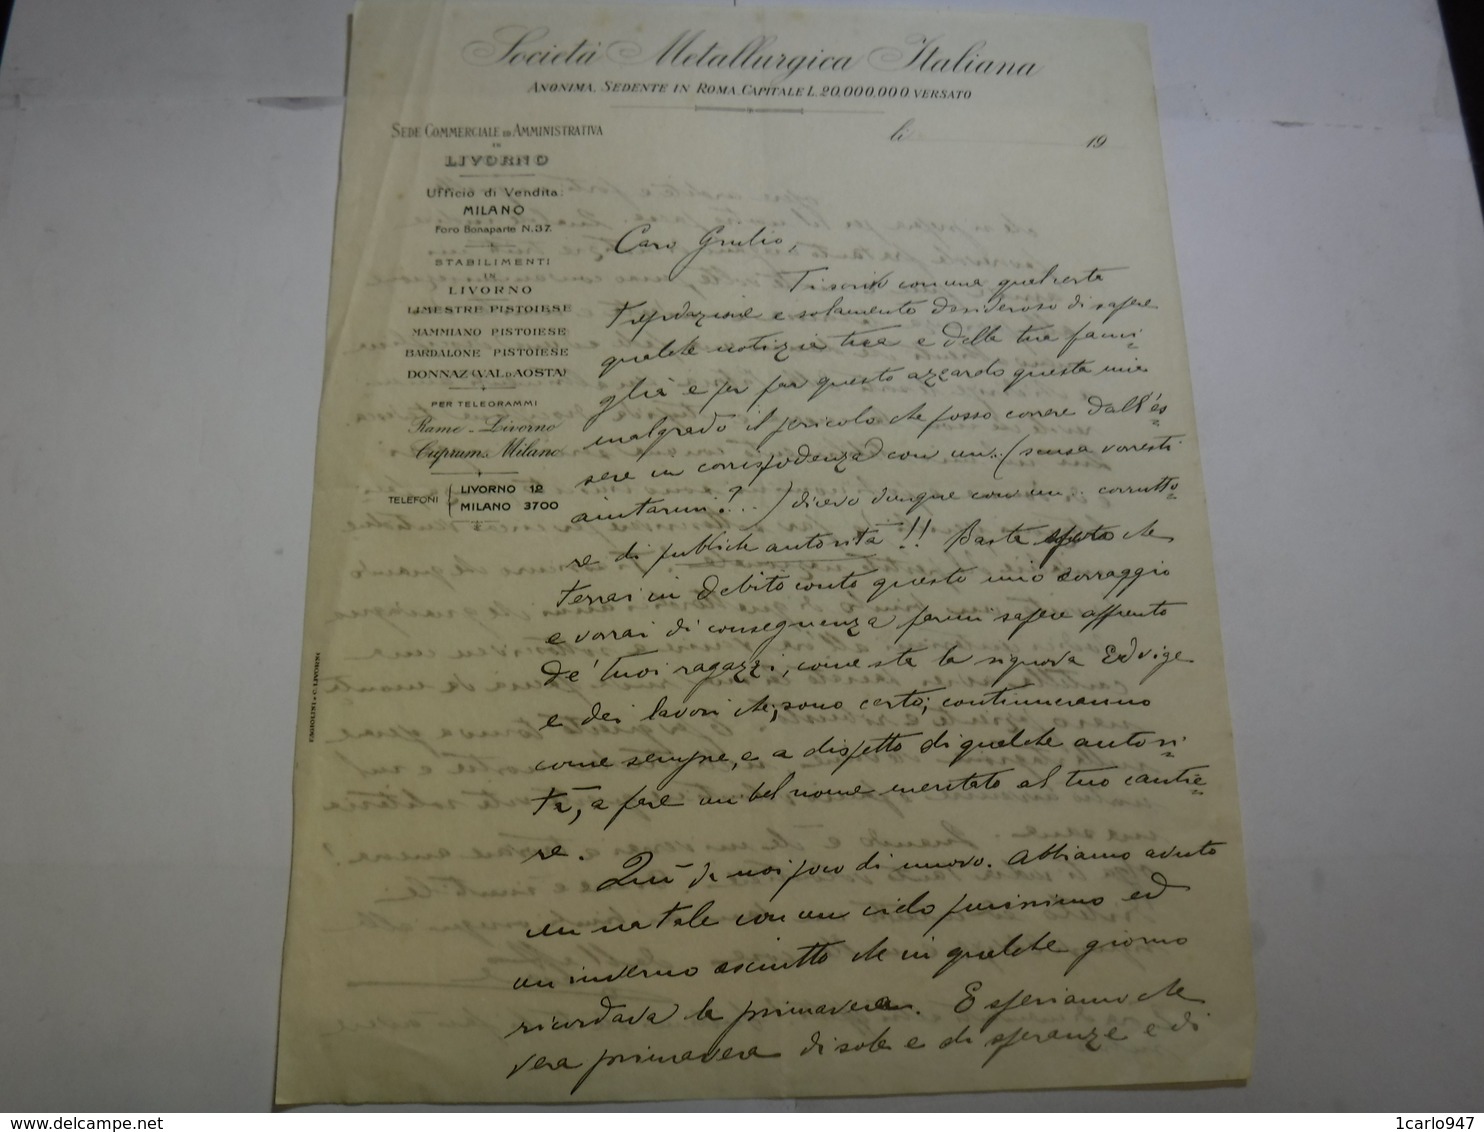 Società Metallurgica Italiana
ANONIMA. SEDENTE IN ROMA. CAPITALE L. 20,000,000 VERSATO
SEDE COMMERCIALE ED AMMINISTRATIVA
IN
LIVORNO
Ufficio di Vendita:
MILANO
Foro Bonaparte N. 37.
STABILIMENTI
IN
LIVORNO
LIMESTRE PISTOIESE
MAMMIANO PISTOIESE
BARDALONE PISTOIESE
DONNAZ (VAL D'AOSTA)
PER TELEGRAMMI
Rame - Livorno
Cuprum - Milano
TELEFONI
LIVORNO 12
MILANO 3700
li 19
Caro Giulio,
Ti scrivo con una qualcerta
trepidazione e solamente desideroso di sapere
qualche notizia tua e della tua fami=
glia e per far questo azzardo questa mia
malgrado il pericolo che posso correre dall'es=
sere in corrispodenza con un... (senza vorresti
aiutarmi?...) dicevo dunque con un... corrutto=
re di publiche autorità!! Basta che
terrai in debito conto questo mio corraggio
e vorrai di conseguenza farmi sapere
de' tuoi ragazzi, come sta la signora Edvige
e dei lavori che, sono certo, continueranno
come sempre, e a dispetto di qualche autori=
tà, a fare un bel nome meritato al tuo cantie=
re.
Quì da noi poco di nuovo. Abbiamo avuto
un natale con un cielo purissimo ed
un inverno asciutto che in qualche giorno
ricordava la primavera. E speriamo che
vera primavera di sole e di speranze e di
1carlo947
www.delcampe.net